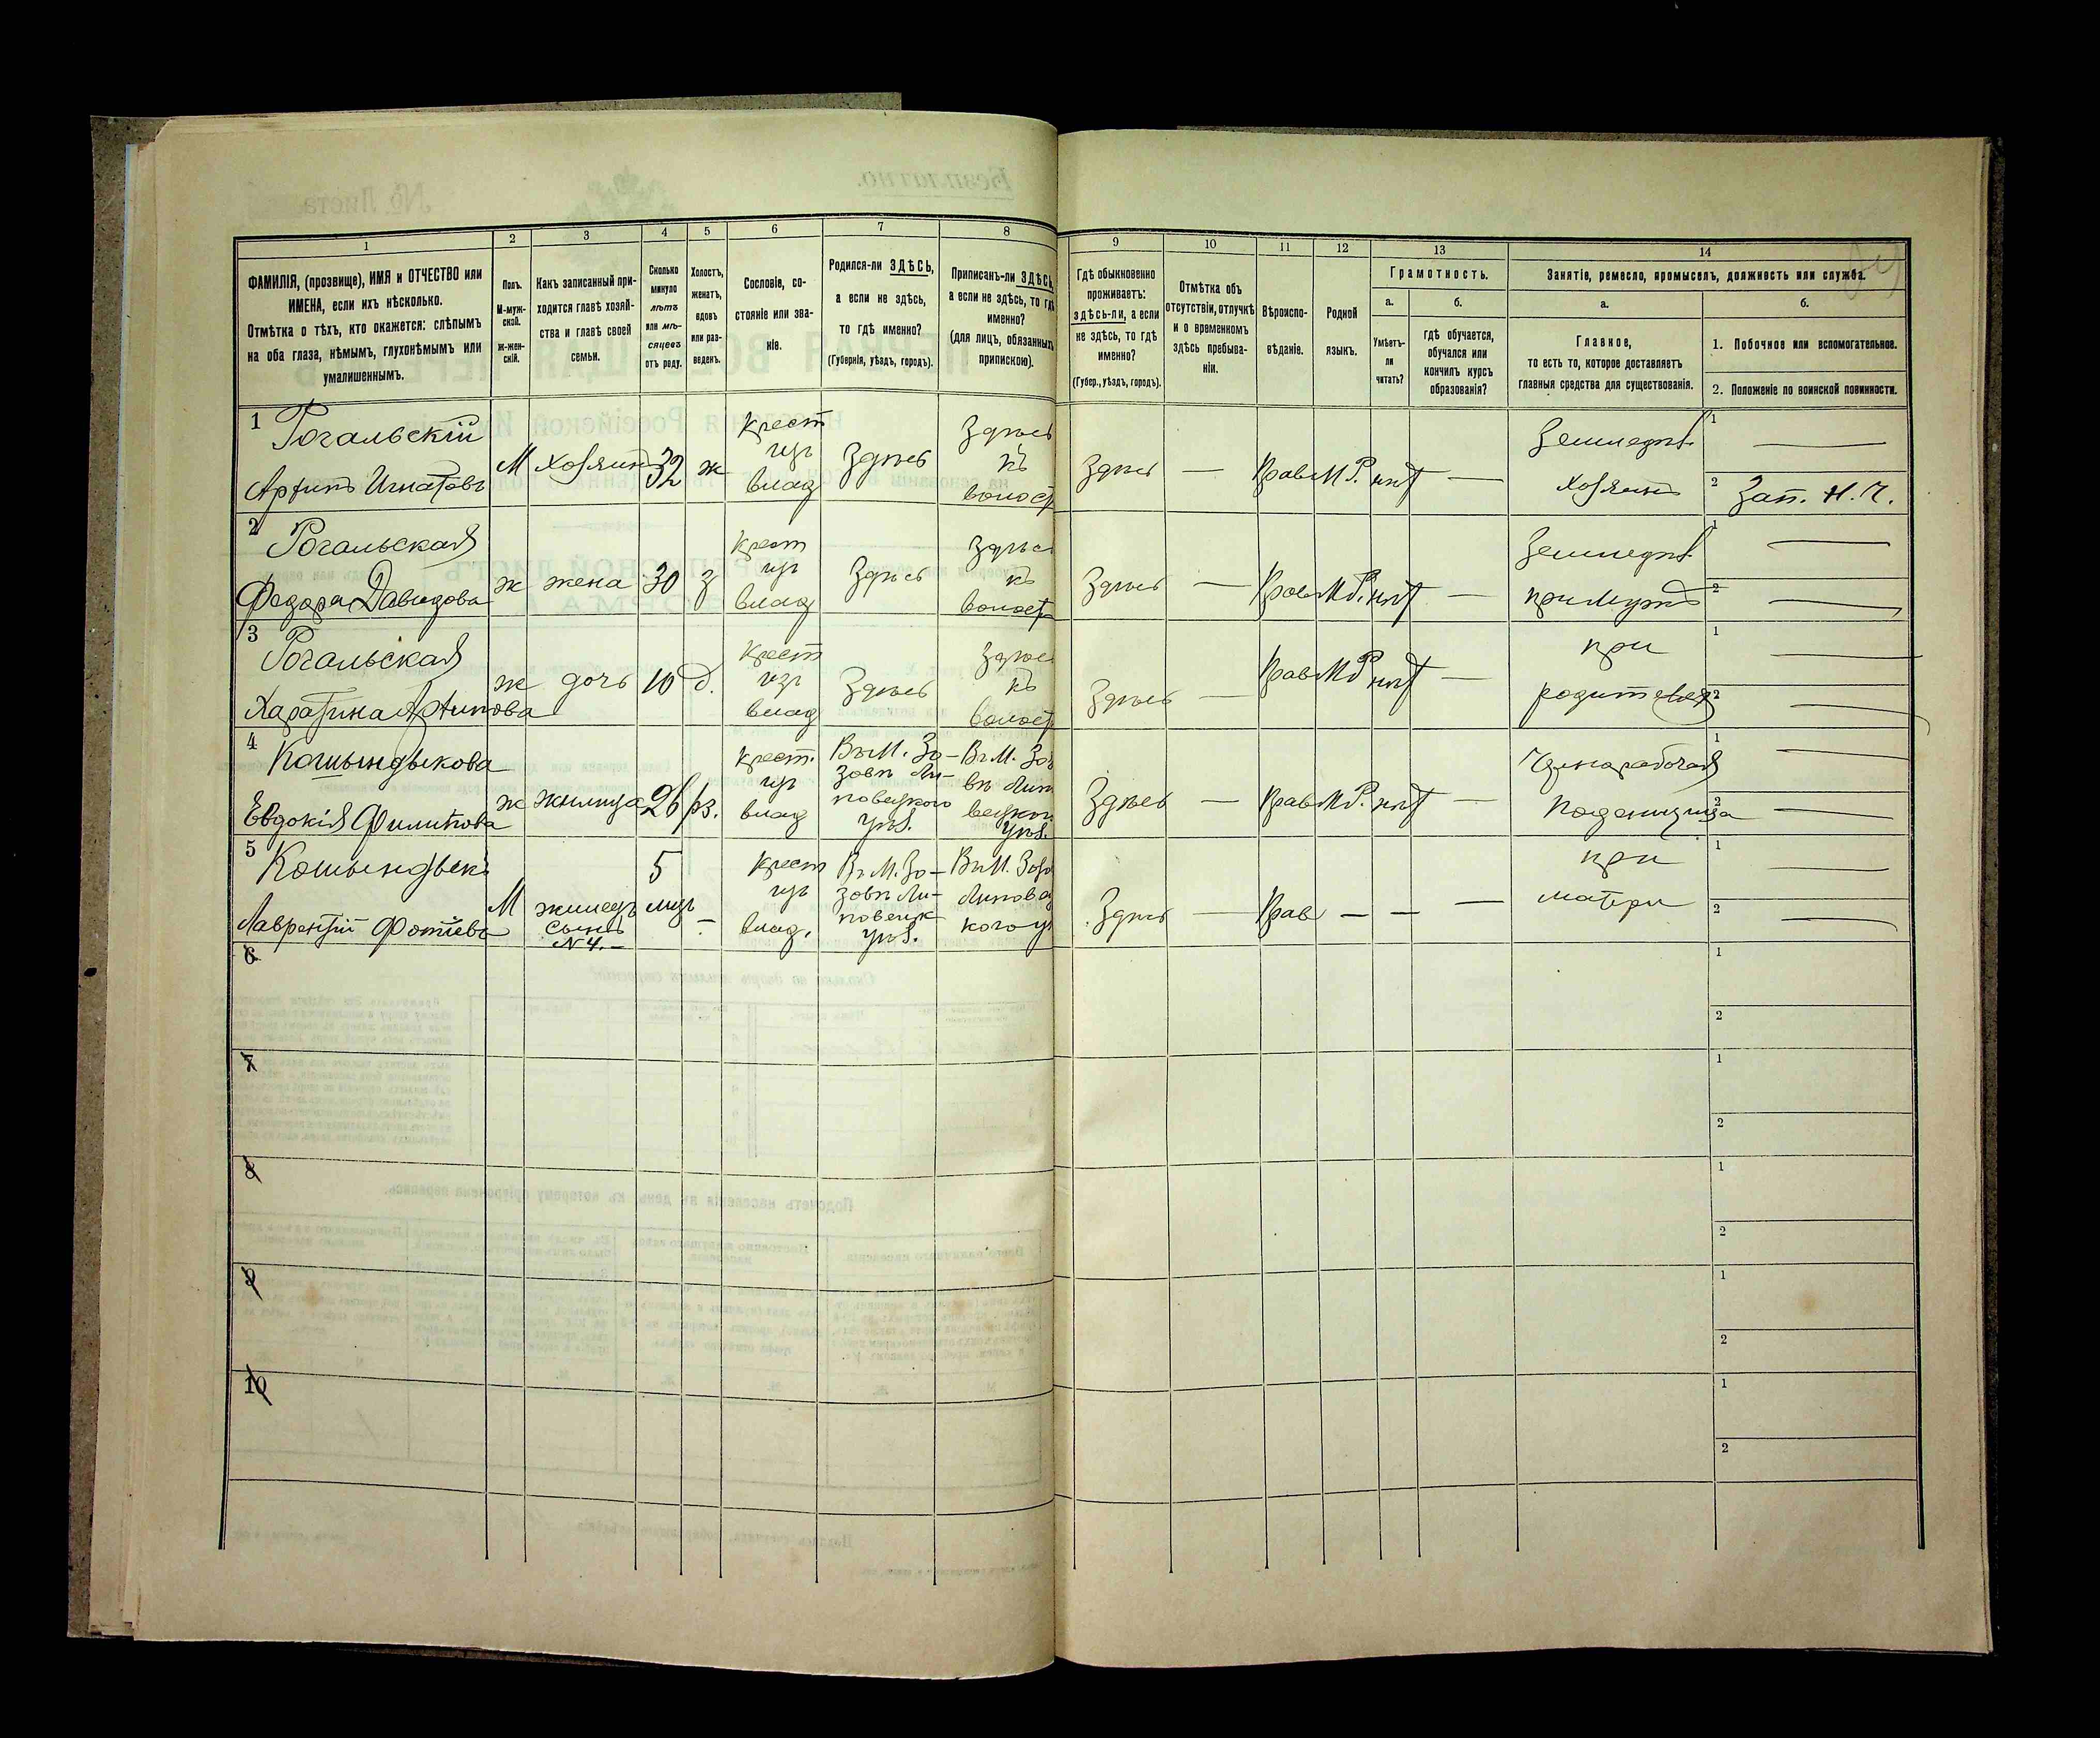 1 2 3 4 5 6 7 8 9 10 11 12 13 14
ФАМИЛІЯ, (прозвище), ИМЯ и ОТЧЕСТВО или
ИМЕНА, если ихъ нѣсколько.
Отмѣтка о тѣхъ, кто окажется: слѣпымъ
на оба глаза, нѣмымъ, глухонѣмымъ или
умалишеннымъ.
Полъ.
М-муж-
ской.
Ж-жен-
скій.
Какъ записанный при-
ходится главѣ хозяй-
ства и главѣ своей
семьи.
Сколько
минуло
лѣтъ
или мѣ-
сяцевъ
отъ роду.
Холостъ,
женатъ,
вдовъ
или раз-
веденъ.
Сословіе, со-
стояніе или зва-
ніе.
Родился-ли ЗДѢСЬ,
а если не здѣсь,
то гдѣ именно?
(Губернія, уѣздъ, городъ).
Приписанъ-ли ЗДѢСЬ,
а если не здѣсь, то гдѣ
именно?
(для лицъ, обязанныхъ
припискою).
Гдѣ обыкновенно
проживаетъ:
здѣсь-ли, а если
не здѣсь, то гдѣ
именно?
(Губер., уѣздъ, городъ).
Отмѣтка объ
отсутствіи, отлучкѣ
и о временномъ
здѣсь пребыва-
ніи.
Вѣроиспо-
вѣданіе.
Родной
языкъ.
Грамотность.
а.
Умѣетъ-
ли
читать?
б.
Гдѣ обучается,
обучался или
кончилъ курсъ
образованія?
Занятіе, ремесло, промыселъ, должность или служба.
а.
Главное,
то есть то, которое доставляетъ
главныя средства для существованія.
б.
1. Побочное или вспомогательное.
2. Положеніе по воинской повинности.
1 Рогальскій
Игнатовъ
М Хозяинъ 32 ж
Крест
изъ
влад
Здѣсь
Здѣсь
къ
волост
Здѣсь — Прав М.Р. нѣт —
Земледѣл.
Хозяинъ
1 —
2 Зап. Н. Ч.
2 Рогальская
Федора Давидова
ж жена 30 з
Крест
изъ
влад
Здѣсь
Здѣсь
къ
волост
Здѣсь — Прав М.Р. нѣт —
Земледѣл.
при мужѣ
1 —
2 —
3 Рогальская
ж дочь 10 д.
Крест
изъ
влад
Здѣсь
Здѣсь
къ
волост
Здѣсь — Прав М Р нѣт —
при
родителях
1 —
2 —
4
Евдокія Филипова
ж жилица 26
крест.
изъ
влад
Въ М. Зо-
зовѣ Ли-
повецкого
уѣз.
Въ М. Зозо
вѣ Липо
вецком
уѣз.
Здѣсь — Прав М Р. нѣт —
Чернарабочая
Поденщица
1 —
2 —
5
Лаврентій Фотіевъ
М жилецъ
сынъ
N 4. —
5
мцъ —
Крест
изъ
влад.
Въ М. Зо-
зовѣ Ли-
повецк
уѣз.
Въ М. Зозо
Липовец
кого у
Здѣсь — Прав — — —
при
матери
1 —
2 —
6
1
2
7
1
2
8
1
2
9
1
2
10
1
2